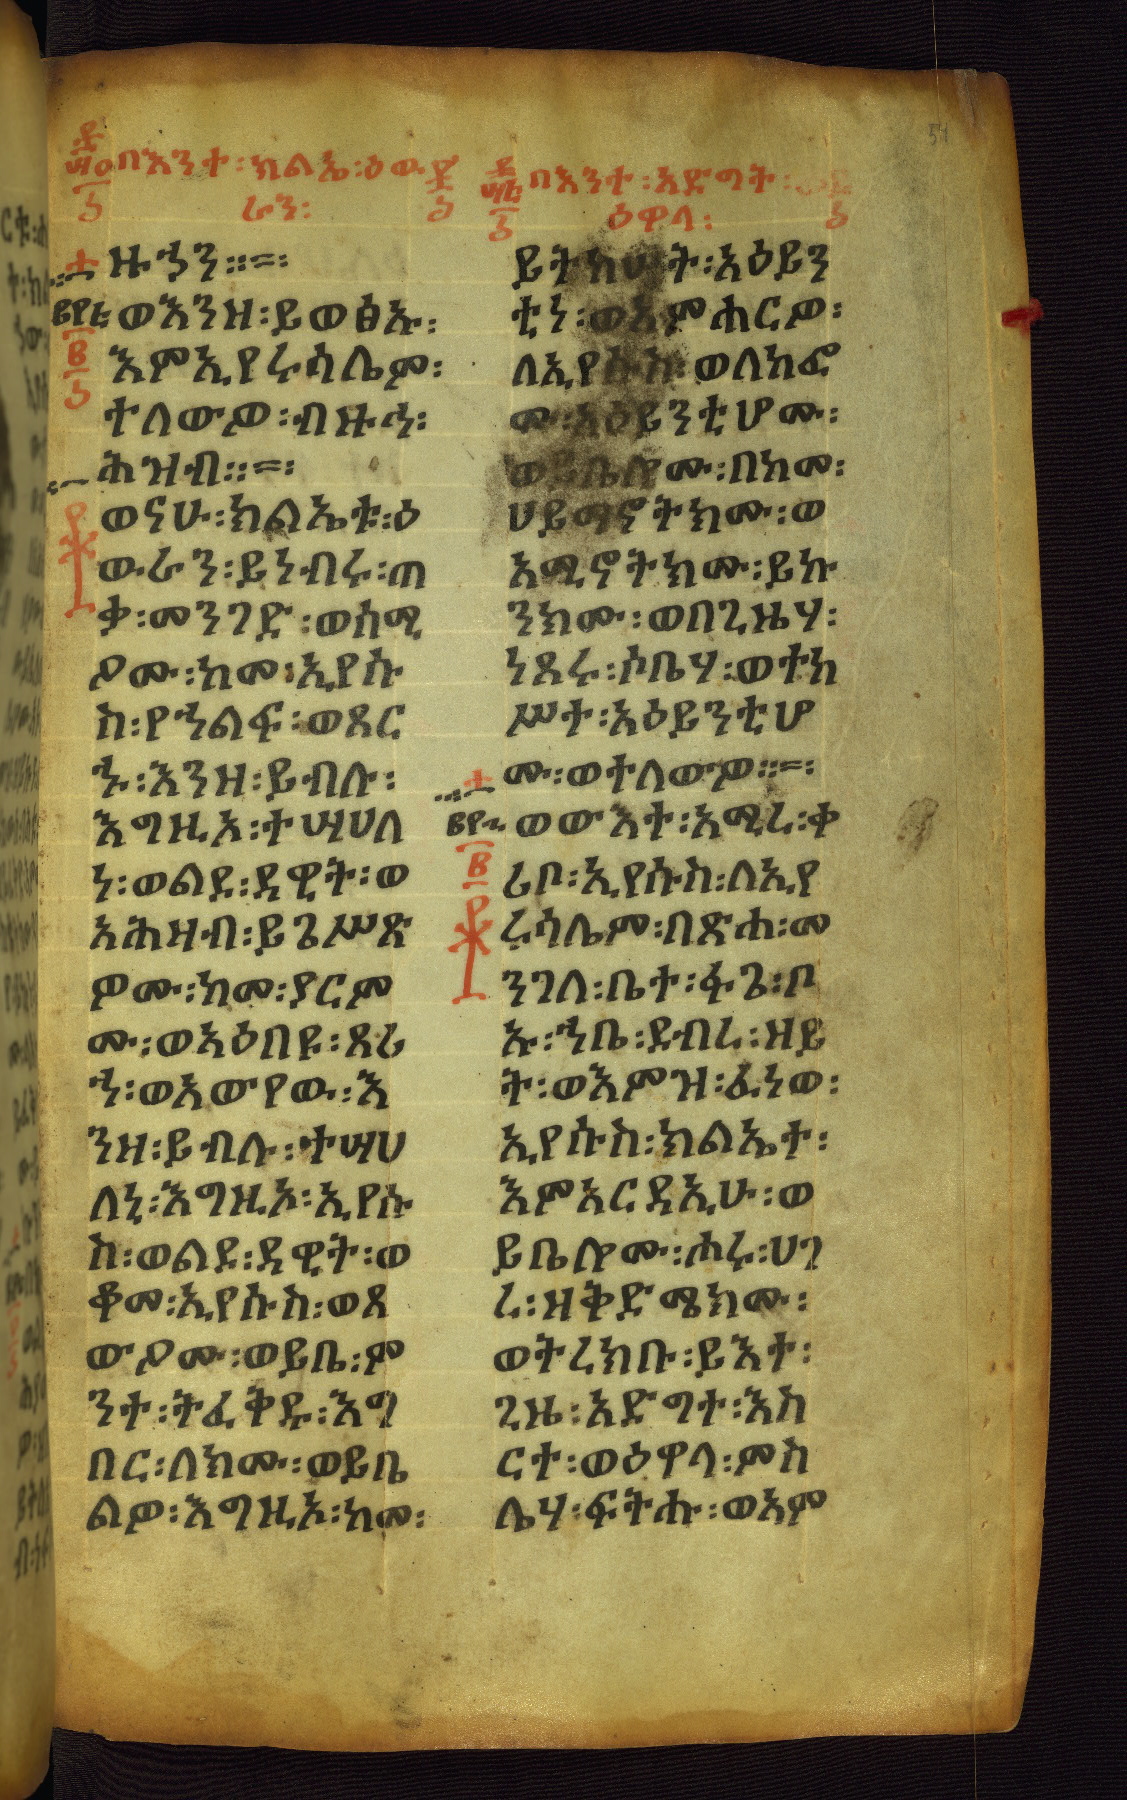 በእንተ፡ክልኤ፡ዕው
ራን፡
ዙኃን፡፡=፡
ወእንዘ፡ይወፅኡ፡
እምኢየሩሳሌም፡
ተለውዎ፡ብዙኃ፡
ሕዝብ፡፡=፡
ወናሁ፡ክልኤቱ፡ዕ
ውራን፡ይነብሩ፡ጠ
ቃ፡መንገድ፡ወሰሚ
ዖሙ፡ከመ፡ኢየሱ
ስ፡የኀልፍ፡ወጸር
ኁ፡እንዘ፡ይብሉ፡
እግዚአ፡ተሣሀለ
ነ፡ወልደ፡ዳዊት፡ወ
አሕዛብ፡ይጌሥጽ
ዎሙ፡ከመ፡ያርም
ሙ፡ወአዕበዩ፡ጸሪ
ኀ፡ወአውየዉ፡እ
ንዘ፡ይብሉ፡ተሣሀ
ለነ፡እግዚኦ፡ኢየሱ
ስ፡ወልደ፡ዳዊት፡ወ
ቆመ፡ኢየሱስ፡ወጸ
ውዖሙ፡ወይቤ፡ም
ንተ፡ትፈቅዱ፡እግ
በር፡ለክሙ፡ወይቤ
ልዎ፡እግዚኦ፡ከመ፡
በእንተ፡አድግት፡
ዕዋላ፡
ይትከሠት፡አዕይን
ቲነ፡ወአምሐርዎ፡
ለኢየሱስ፡ወለከፎ
ሙ፡አዕይንቲሆሙ፡
ወይቤሎሙ፡በከመ፡
ሀይማኖትክሙ፡ወ
አሚኖትክሙ፡ይኩ
ንክሙ፡ወበጊዜሃ፡
ነጸሩ፡ሶቤሃ፡ወተከ
ሥተ፡አዕይንቲሆ
ሙ፡ወተለውዎ፡፡=፡
ወውእተ፡አሚረ፡ቀ
ሪቦ፡ኢየሱስ፡ለኢየ
ሩሳሌም፡በጽሐ፡መ
ንገለ፡ቤተ፡ፋጌ፡ቦ
ኡ፡ኀቤ፡ደብረ፡ዘይ
ት፡ወእምዝ፡ፈነወ፡
ኢየሱስ፡ክልኤተ፡
እምአርዳኢሁ፡ወ
ይቤሎሙ፡ሐሩ፡ሀገ
ረ፡ዘቅድሜክሙ፡
ወትረክቡ፡ይእተ፡
ጊዜ፡አድግተ፡እስ
ርተ፡ወዕዋላ፡ምስ
ሌሃ፡ፍትሑ፡ወአም